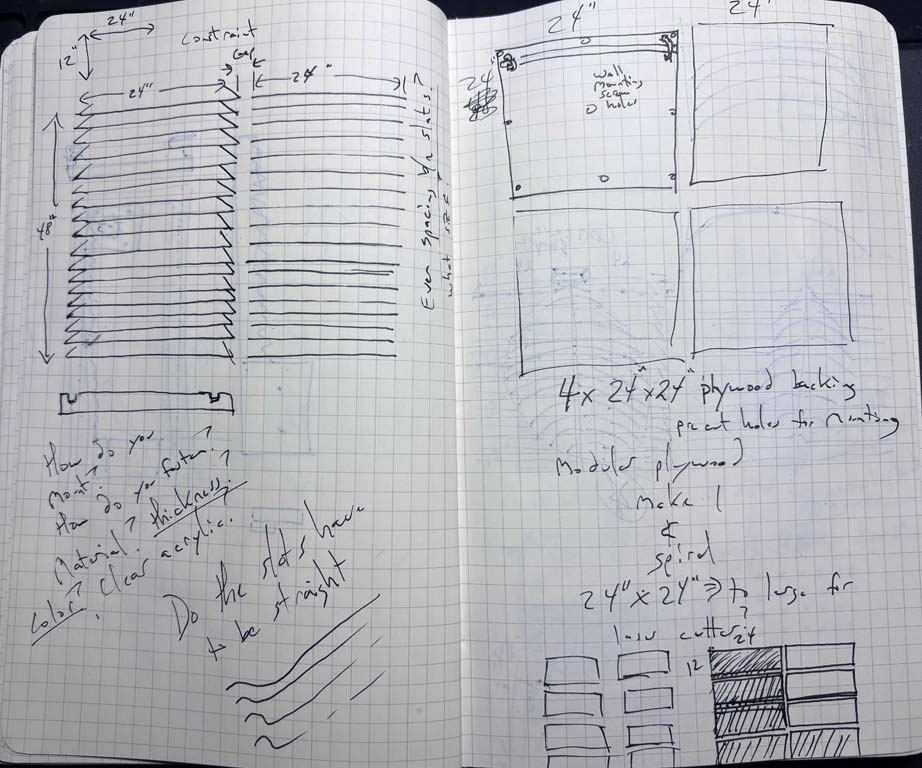 24"
12"
Constraint
Gap
24"
24"
48"
Even spacing b/n slats?
what size?
How do you
mount?
How do you fasten?
Material? thickness?
Color? Clear acrylic?
Do the slats have
to be straight
24"
24"
24
wall
mounting
screw
holes
4x 24"x24" plywood backing
precut holes for mounting
Modular plywood
make 1
&
spiral
24" x 24" => to large for
laser cutter?
24
12